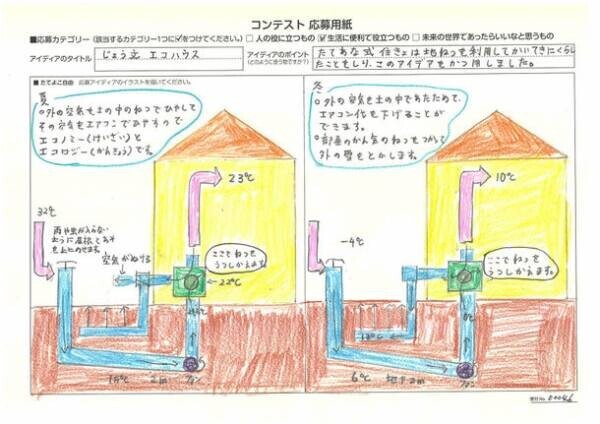 コンテスト 応募用紙
■応募カテゴリー(該当するカテゴリー1つに✓をつけてください。) □ 人の役に立つもの ☑ 生活に便利で役立つもの □ 未来の世界であったらいいなと思うもの
アイディアのタイトル じょう立 エコハウス
アイディアのポイント
(どのように使う物ですか?)
たてあな式住きょは地ねつを利用してかいてきにくらし
たことをしり、このアイデアをかつ用しました。
■たてよこ自由 応募アイディアのイラストを描いてください。
夏
○外の空気を土の中のねつでひやして
その空気をエアコンでひやすので
エコノミー(けいざい)と
エコロジー(かんきょう)です。
23℃
32℃
雨や虫が入らない
ように屋根とあみ
をとりつけます。
空気がぬける
ここでねつを
うつしかえます。
22℃
15℃
2m
ファン
冬
○外の空気を土の中であたためて、
エアコン代を下げることが
できます。
○部屋のかん気のねつをつかって
外の雪をとかします。
10℃
-4℃
ここでねつを
うつしかえます。
6℃
地下2m
ファン
受付No.